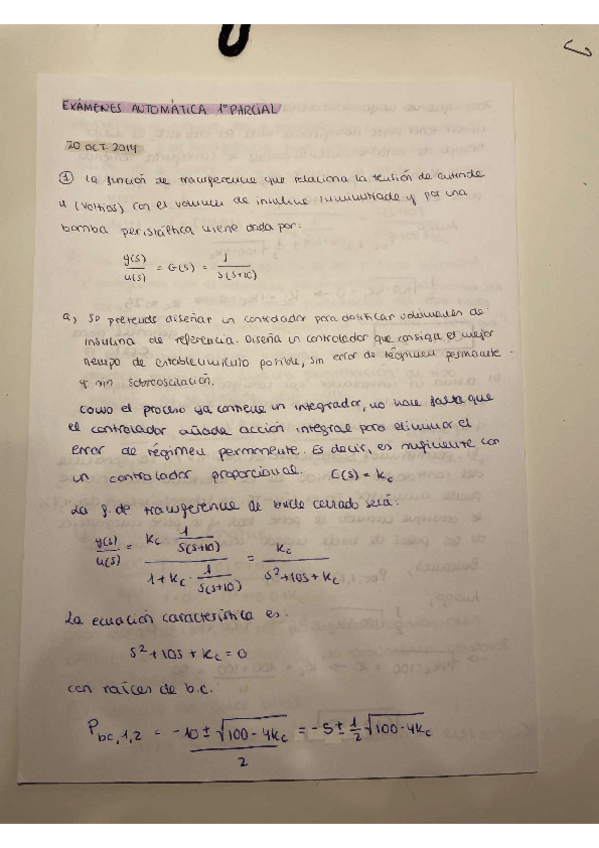 EXÁMENES AUTOMÁTICA 1º PARCIAL
20 OCT. 2014
① La función de transferencia que relaciona la tensión de entrada
u (voltios) con el volumen de insulina suministrada y por una
bomba peristáltica viene dada por:
y(s)/u(s) = G(s) = 1/(s(s+10))
a) Se pretende diseñar un controlador para dosificar volúmenes de
insulina de referencia. Diseña un controlador que consiga el mejor
tiempo de establecimiento posible, sin error de régimen permanente
y sin sobreoscilación.
Como el proceso ya contiene un integrador, no hace falta que
el controlador añada acción integral para eliminar el
error de régimen permanente. Es decir, es suficiente con
un controlador proporcional. C(s) = Kc
La f. de transferencia de bucle cerrado será:
y(s)/u(s) = (Kc · 1/(s(s+10)))/(1 + Kc · 1/(s(s+10))) = Kc/(s²+10s+Kc)
La ecuación característica es:
s²+10s+Kc = 0
con raíces de b.c.:
P bc,1,2 = (-10 ± √(100-4Kc))/2 = -5 ± 1/2 √(100-4Kc)